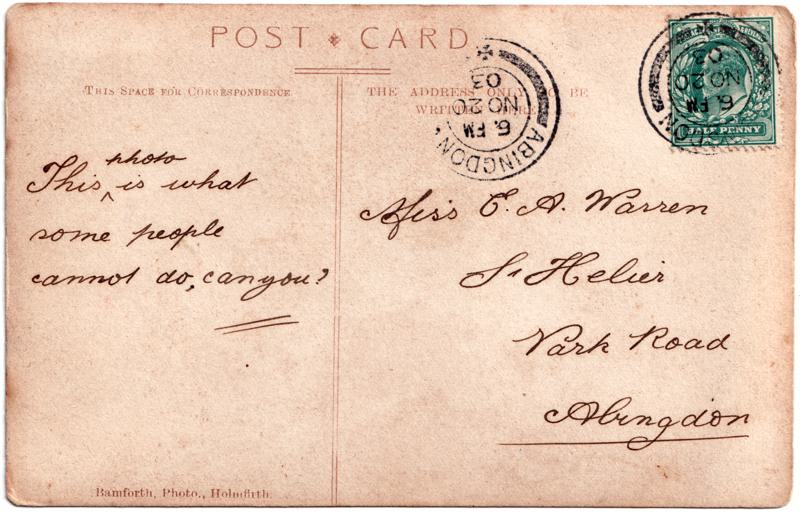 POST CARD
THIS SPACE FOR CORRESPONDENCE.
THE ADDRESS ONLY TO BE
WRITTEN HERE
ABINGDON
6. PM
NO 20
03
ABINGDON
6. PM
NO 20
03
HALF PENNY
This photo is what
some people
cannot do, can you?
Miss E. A. Warren
St Helier
Park Road
Abingdon
Bamforth, Photo., Holmfirth.